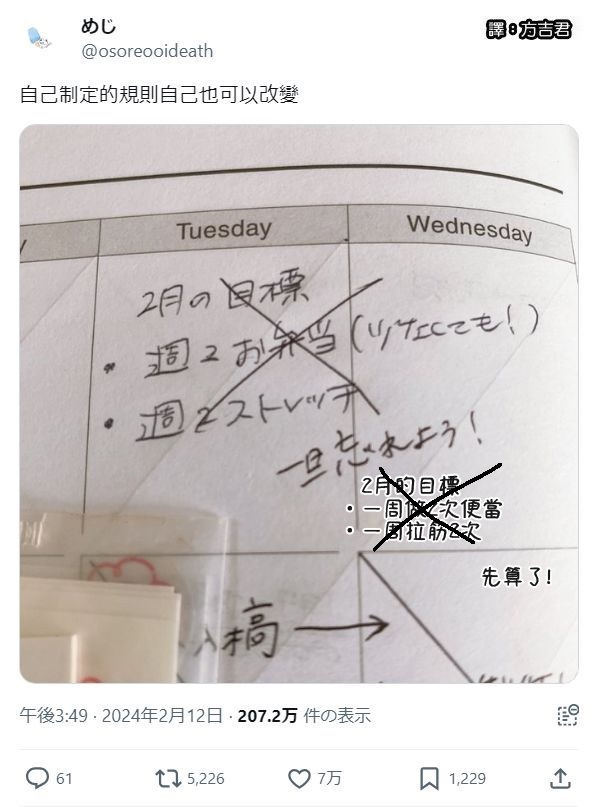 めじ
@osoreooideath
譯:方吉君
自己制定的規則自己也可以改變
Tuesday
Wednesday
2月の目標
・週2お弁当(!)
・週2ストレッチ
一旦忘れよう!
2月的目標
・一周做2次便當
・一周拉筋2次
先算了!
入稿
午後3:49 · 2024年2月12日 · 207.2万 件の表示
61
5,226
7万
1,229